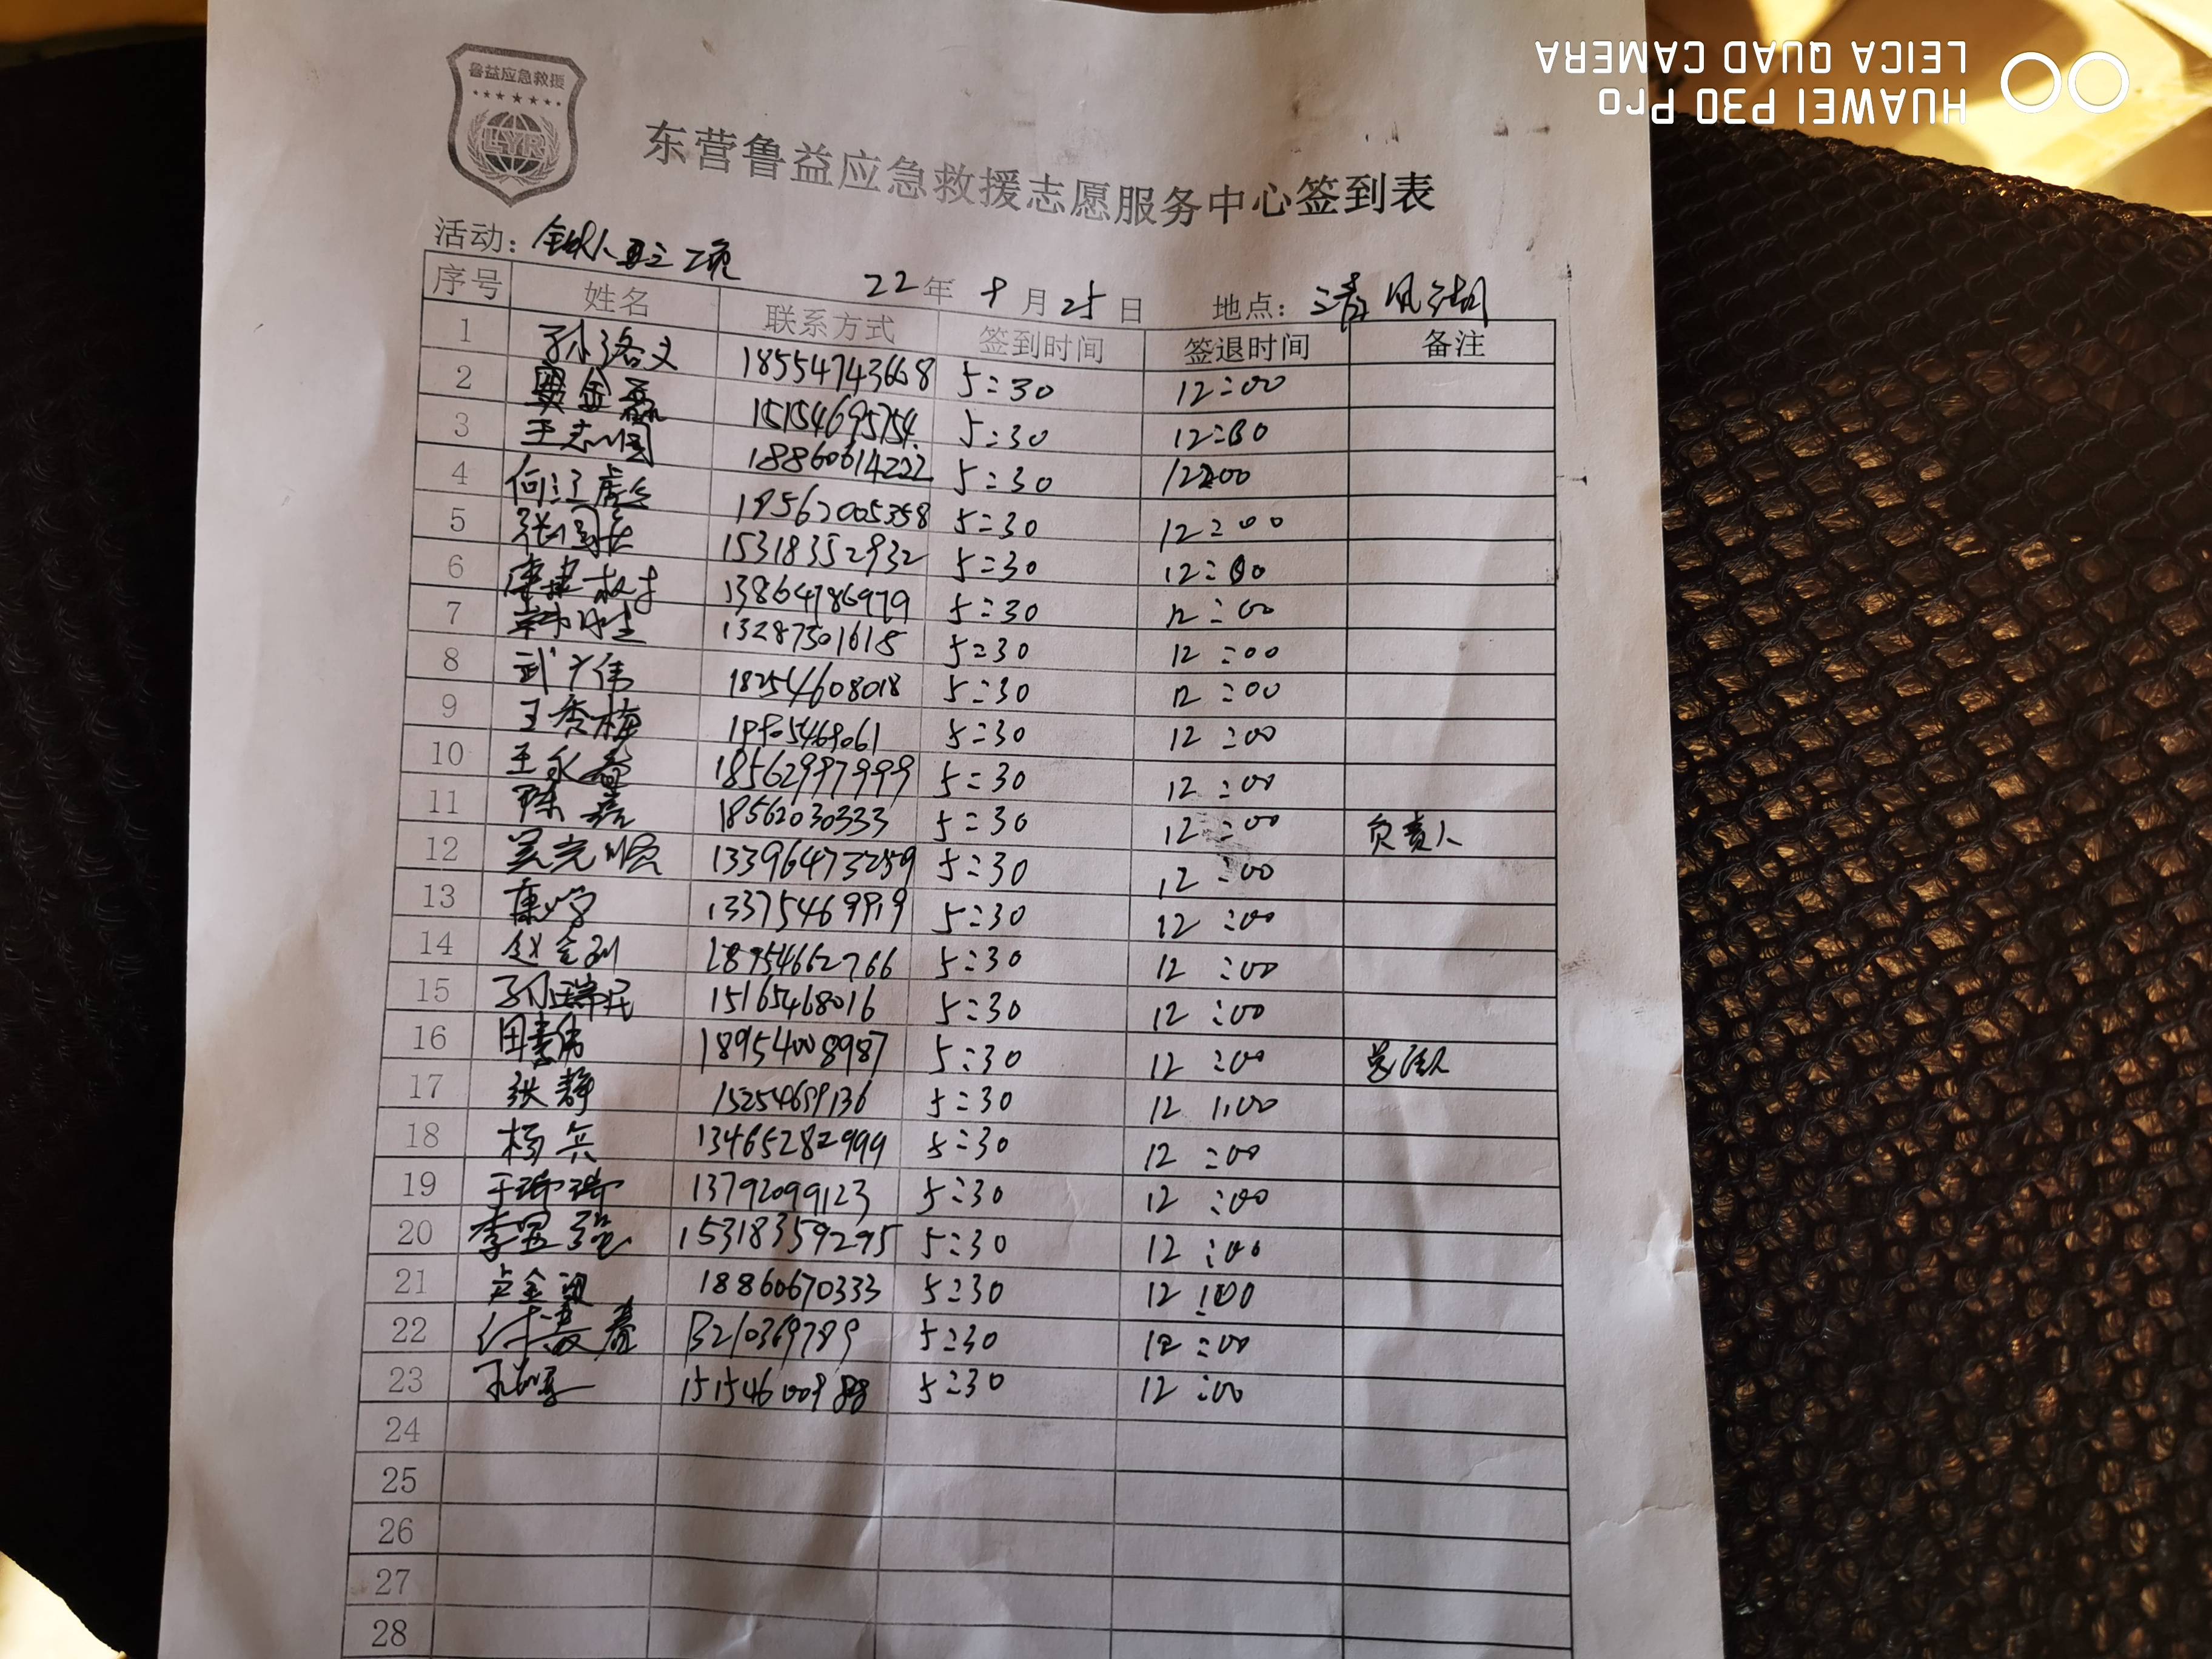 鲁益应急救援
LYR
东营鲁益应急救援志愿服务中心签到表
活动: 铁人三项 22年 9月25日 地点: 清风湖
序号 姓名 联系方式 签到时间 签退时间 备注
1 孙洛义 18554743668 5:30 12:00
2 金磊 15154695754 5:30 12:00
3 王志国 18860614222 5:30 12:00
4 何江 19562005358 5:30 12:00
5 张国 15318352932 5:30 12:00
6 13864786979 5:30 12:00
7 韩 13287301618 5:30 12:00
8 武少伟 18254608018 5:30 12:00
9 王秀梅 5:30 12:00
10 王永春 18562997999 5:30 12:00
11 陈磊 18562030333 5:30 12:00 负责人
12 吴克顺 13396473259 5:30 12:00
13 康 13375469919 5:30 12:00
14 赵金 18954662766 5:30 12:00
15 孙瑞民 15165468016 5:30 12:00
16 田 18954008987 5:30 12:00
17 张静 15254699136 5:30 12:00
18 杨兵 13465282999 5:30 12:00
19 于瑞瑞 13792099123 5:30 12:00
20 李昱强 15318359295 5:30 12:00
21 卢金 18860670333 5:30 12:00
22 付 春 13210369789 5:30 12:00
23 15154600988 5:30 12:00
24
25
26
27
28
HUAWEI P30 Pro
LEICA QUAD CAMERA